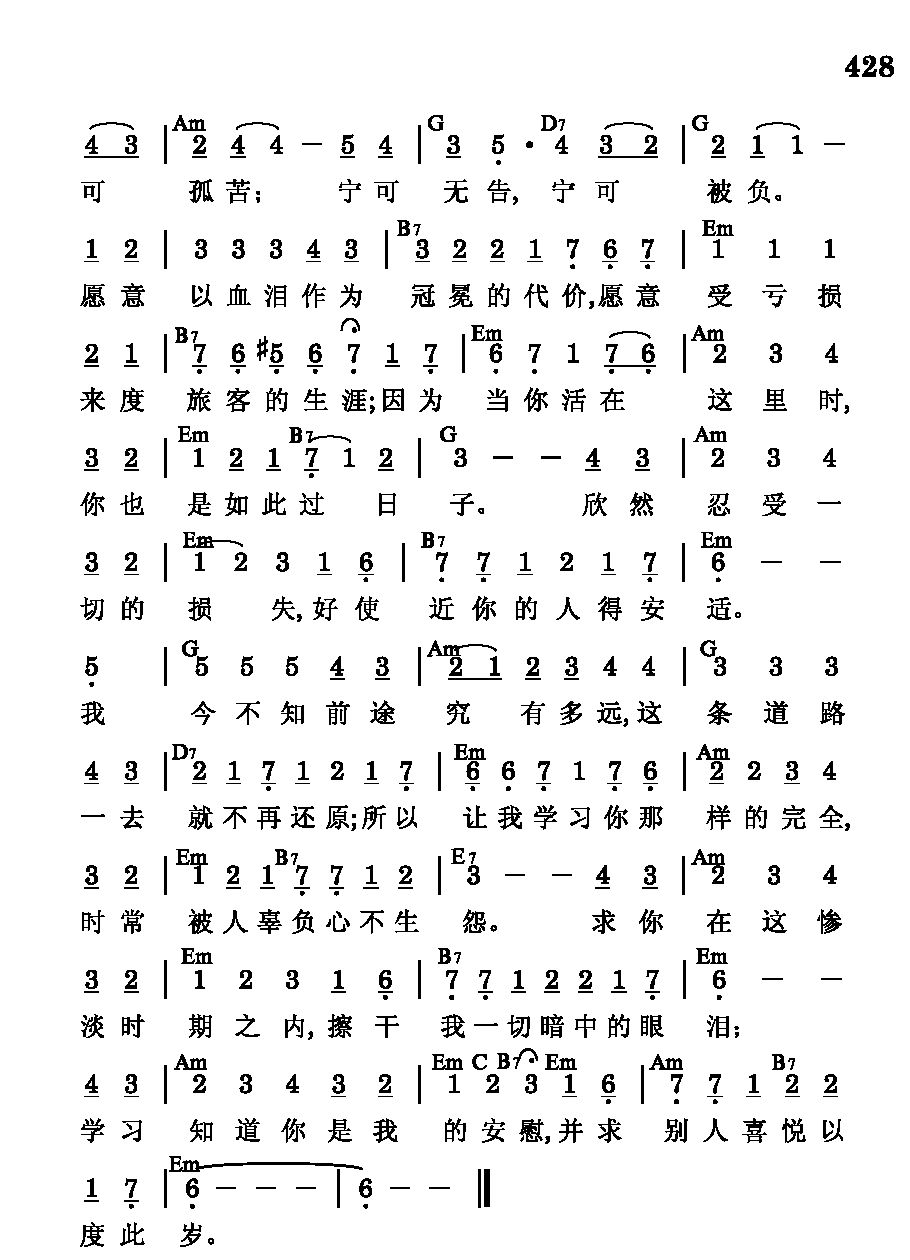 428
Am G D7 G
4 3 | 2 4 4 – 5 4 | 3 5 · 4 3 2 | 2 1 1 –
可 孤苦; 宁可 无告, 宁可 被负。
B7 Em
1 2 | 3 3 3 4 3 | 3 2 2 1 7 6 7 | 1 1 1
愿意 以血泪作为 冠冕的代价,愿意 受亏损
B7 Em Am
2 1 | 7 6 #5 6 7 1 7 | 6 7 1 7 6 | 2 3 4
来度 旅客的生涯;因为 当你活在 这里时,
Em B7 G Am
3 2 | 1 2 1 7 1 2 | 3 – – 4 3 | 2 3 4
你也 是如此过 日 子。 欣然 忍受一
Em B7 Em
3 2 | 1 2 3 1 6 | 7 7 1 2 1 7 | 6 – –
切的 损 失,好使 近你的人得安 适。
G Am G
5 | 5 5 5 4 3 | 2 1 2 3 4 4 | 3 3 3
我 今不知前途 究 有多远,这 条道路
D7 Em Am
4 3 | 2 1 7 1 2 1 7 | 6 6 7 1 7 6 | 2 2 3 4
一去 就不再还原;所以 让我学习你那 样的完全,
Em B7 E7 Am
3 2 | 1 2 1 7 7 1 2 | 3 – – 4 3 | 2 3 4
时常 被人辜负心不生 怨。 求你 在这惨
Em B7 Em
3 2 | 1 2 3 1 6 | 7 7 1 2 2 1 7 | 6 – –
淡时 期之内,擦干 我一切暗中的眼 泪;
Am Em C B7 Em Am B7
4 3 | 2 3 4 3 2 | 1 2 3 1 6 | 7 7 1 2 2
学习 知道你是我 的安慰,并求 别人喜悦以
Em
1 7 | 6 – – – | 6 – – ‖
度此 岁。